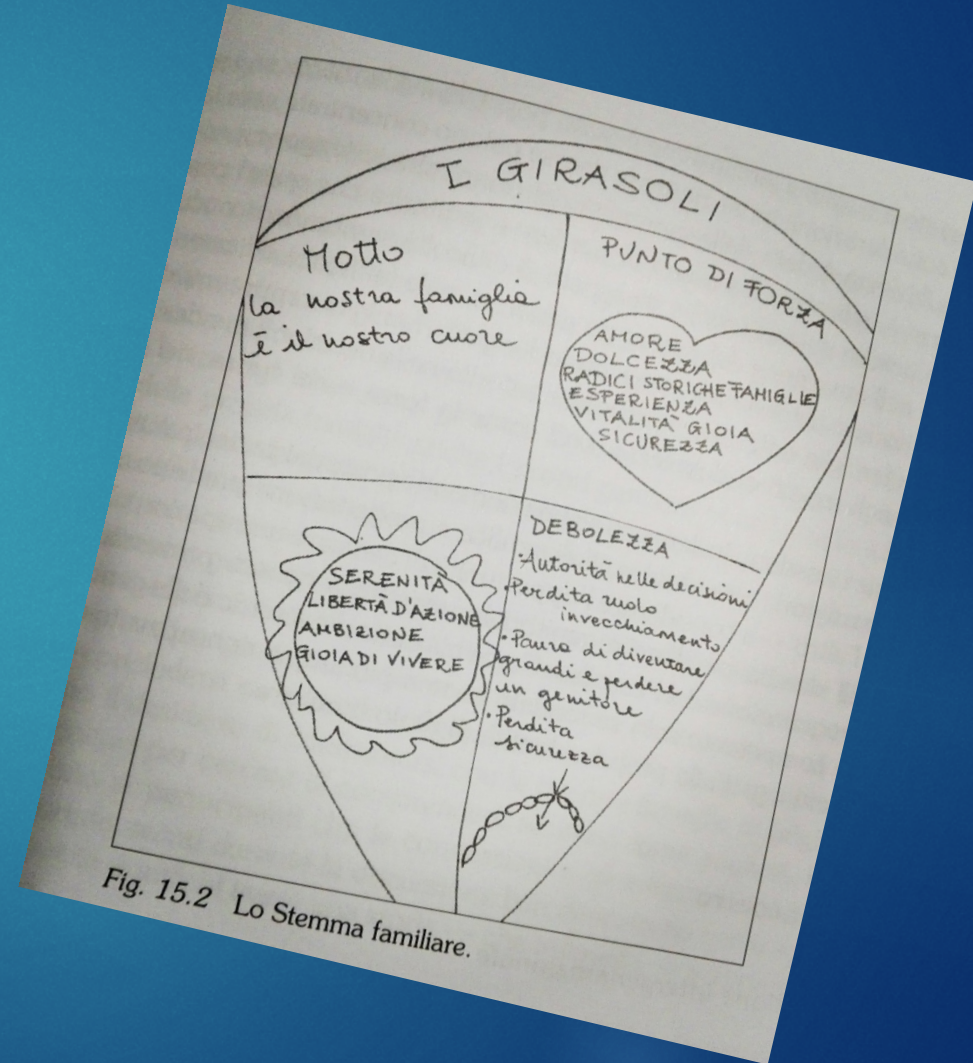 I GIRASOLI
Motto
la nostra famiglia
è il nostro cuore
PUNTO DI FORZA
AMORE
DOLCEZZA
RADICI STORICHE FAMIGLIE
ESPERIENZA
VITALITÀ GIOIA
SICUREZZA
SERENITÀ
LIBERTÀ D'AZIONE
AMBIZIONE
GIOIA DI VIVERE
DEBOLEZZA
• Autorità nelle decisioni
• Perdita ruolo
invecchiamento
• Paura di diventare
grandi e perdere
un genitore
• Perdita
sicurezza
Fig. 15.2 Lo Stemma familiare.